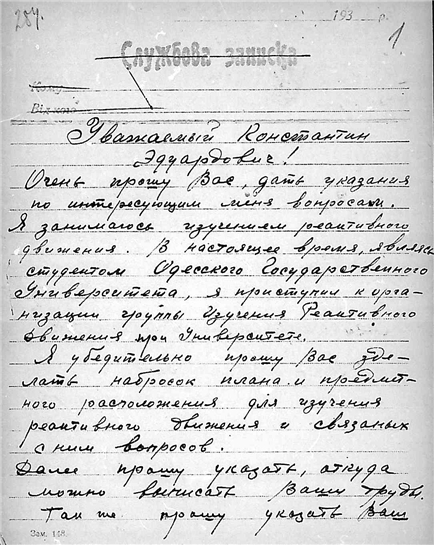 284.
193 р.
1
Службова записка
Кому
Від кого
Уважаемый Константин
Эдуардович!
Очень прошу Вас, дать указания
по интересующим меня вопросам.
Я занимаюсь изучением реактивного
движения. В настоящее время, являясь
студентом Одесского Государственного
Университета, я приступил к орга-
низации группы Изучения Реактивного
Движения при Университете.
Я убедительно прошу Вас зде-
лать набросок плана и предмет-
ного расположения для изучения
реактивного движения и связаных
с ним вопросов.
Далее прошу указать, аткуда
можно выписать Ваши труды.
Так же прошу указать Ваш
Зам. 148.